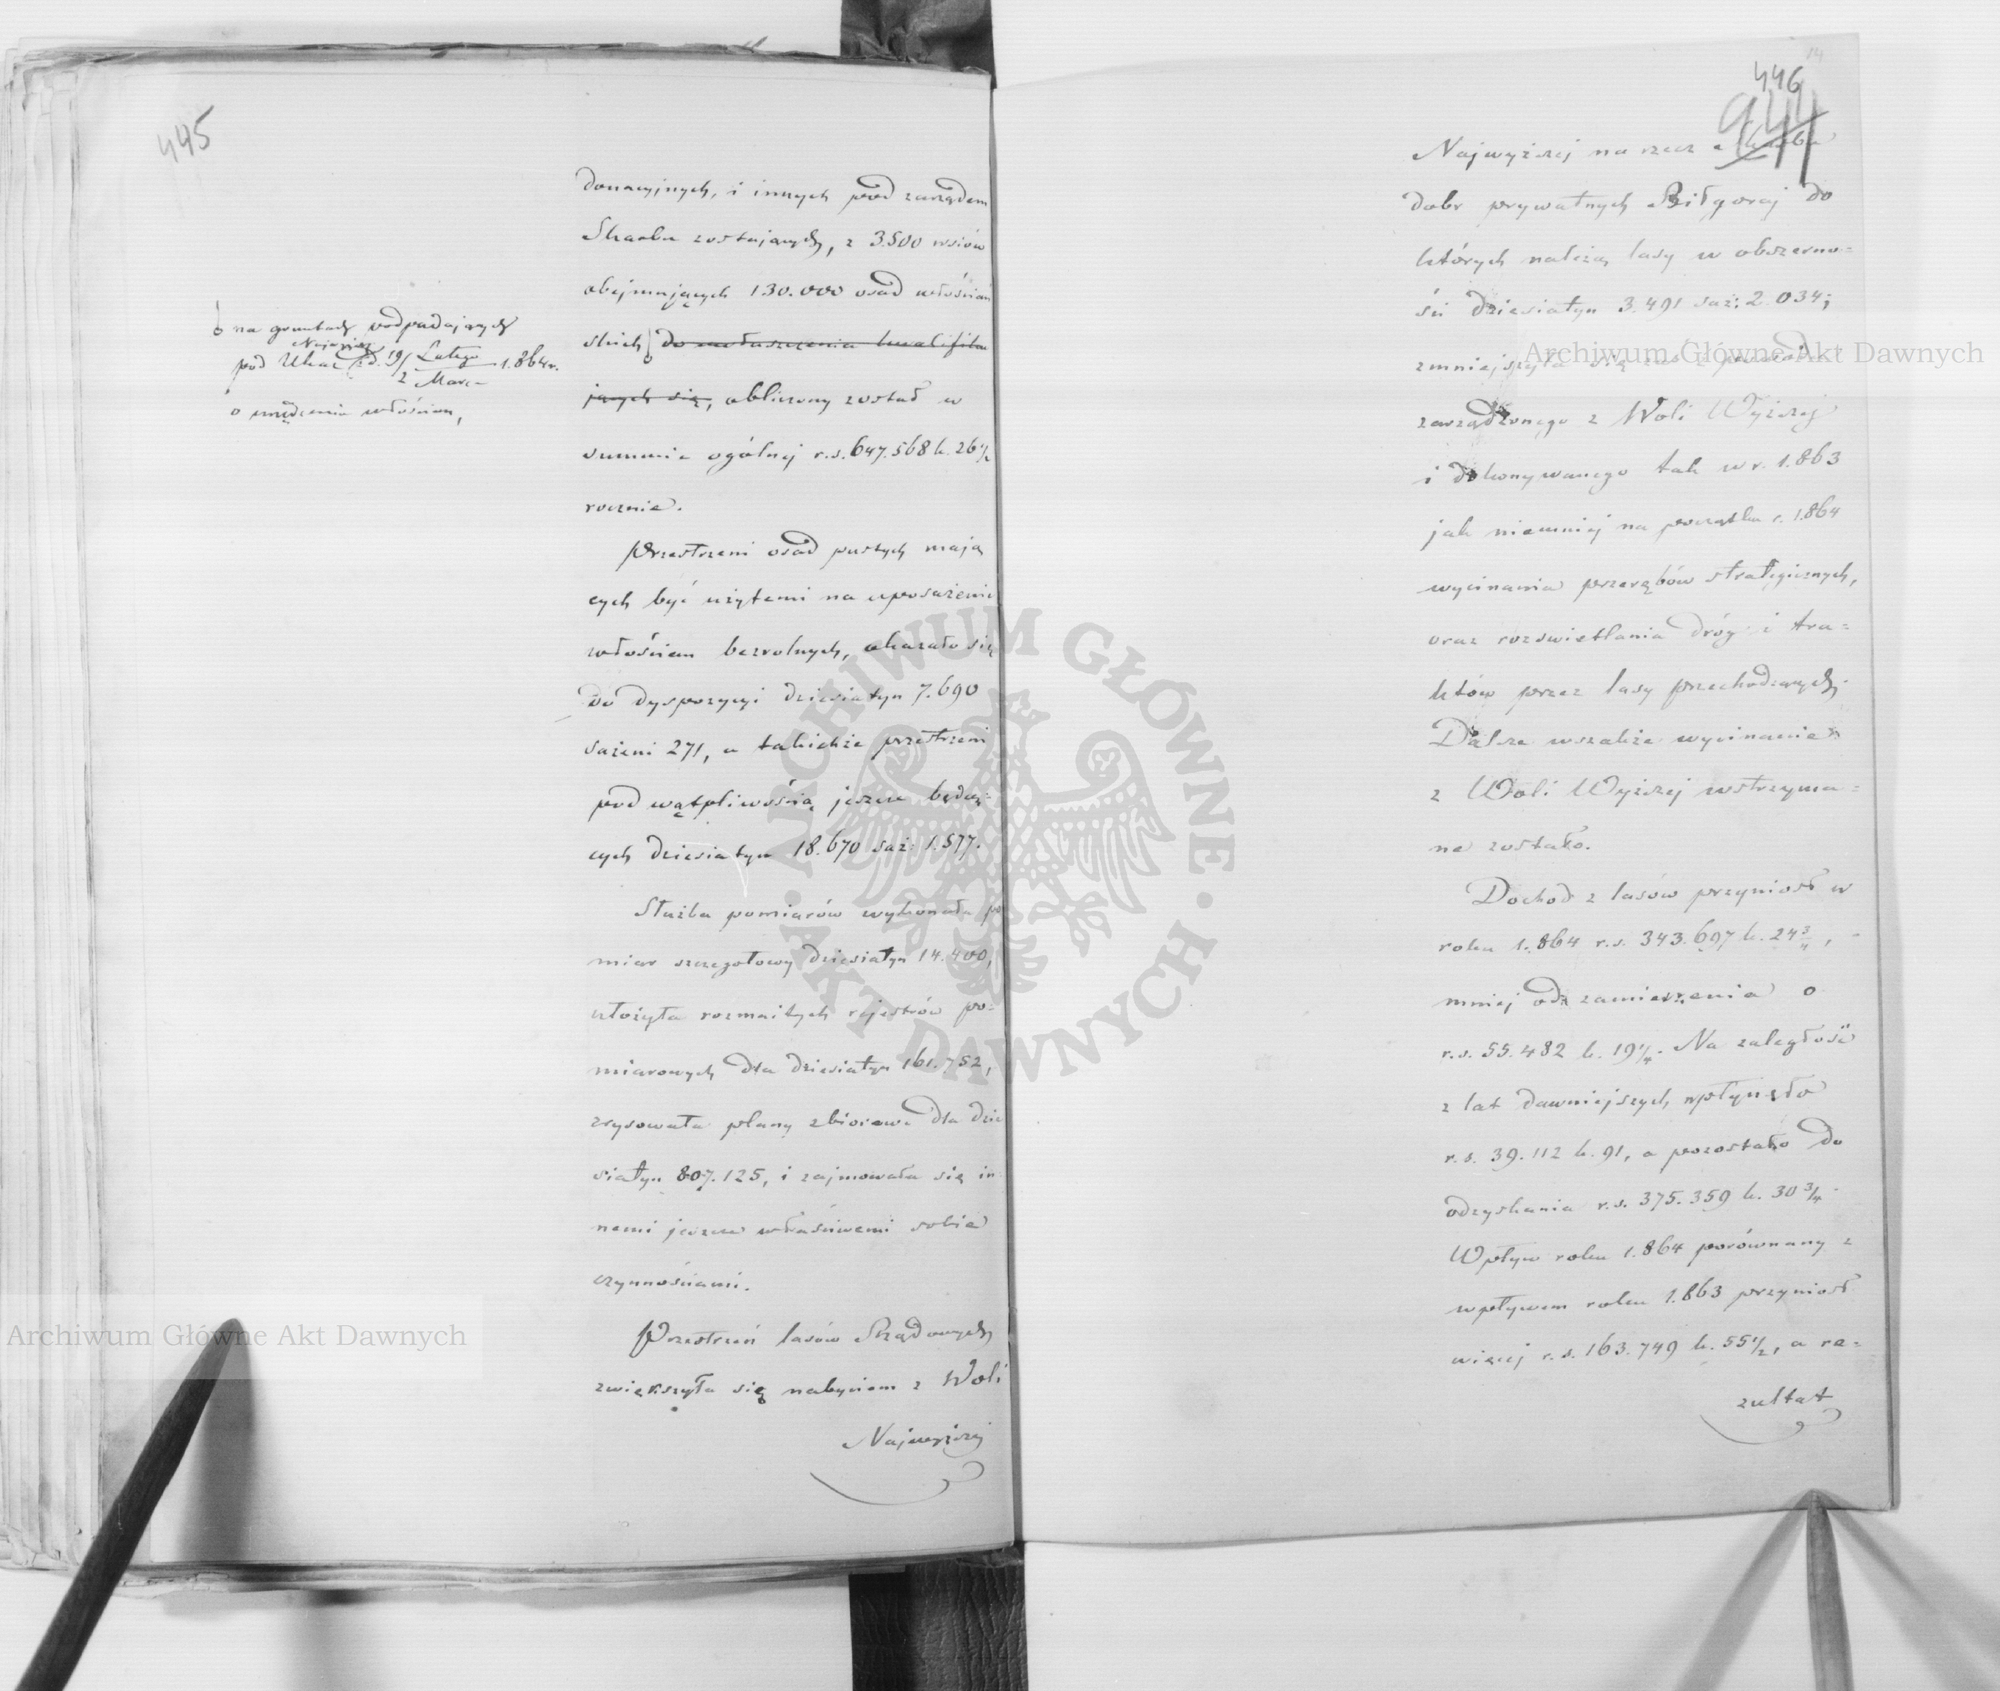 445
donacyjnych, i innych pod zarządem
Skarbu zostających, z 3.500 wsiów
obejmujących 130.000 osad włościań
skich do oczynszowania kwalifiku
jących się, obliczony został w
summie ogólnej r.s. 647.568 k. 26 1/2
rocznie.
na gruntach podpadających
pod Ukaz Najwyższy z d. 19/2 Lutego/Marca 1.864 r.
o urządzeniu włościan,
Przestrzeni osad pustych mają
cych być użytemi na uposażenie
włościan bezrolnych, okazało się
do dyspozycyi dziesiatyn 7.690
sażeni 271, a takichże przestrzeni
pod wątpliwością jeszcze będą=
cych dziesiatyn 18.670 saż: 1.577.
Służba pomiarów wykonała po
miar szczegołowy dziesiatyn 14.400,
ułożyła rozmaitych rejestrów po=
miarowych dla dziesiatyn 161.752,
zrysowała plany zbiorowe dla dzie
siatyn 807.125, i zajmowała się in
nemi jeszcze właściwemi sobie
czynnościami.
Przestrzeń lasów Rządowych
zwiększyła się nabyciem z Woli
Najwyższej
14
446
944
Najwyższej na rzecz Skarbu
dobr prywatnych Biłgoraj do
których należą lasy w obszerno=
ści dziesiatyn 3.491 saż: 2.034;
zmniejszyła się zaś z powodu
zarządzonego z Woli Wyższej
i dokonywanego tak w r. 1.863
jak niemniej na początku r. 1.864
wycinania przerębów strategicznych,
oraz rozświetlania dróg i tra=
któw przez lasy przechodzących.
Dalsze wszakże wycinanie
z Woli Wyższej wstrzyma=
ne zostało.
Dochod z lasów przyniosł w
roku 1.864 r.s. 343.697 k. 24 3/4,
mniej od zamierzenia o
r.s. 55.482 k. 19 1/4. Na zaległość
z lat dawniejszych wpłynęło
r.s. 39.112 k. 91, a pozostało do
odzyskania r.s. 375.359 k. 30 3/4.
Wpływ roku 1.864 porównany z
wpływem roku 1.863 przyniosł
więcej r.s. 163.749 k. 55 1/2, a re=
zultat
Archiwum Główne Akt Dawnych
Archiwum Główne Akt Dawnych
ARCHIWUM GŁÓWNE
AKT DAWNYCH